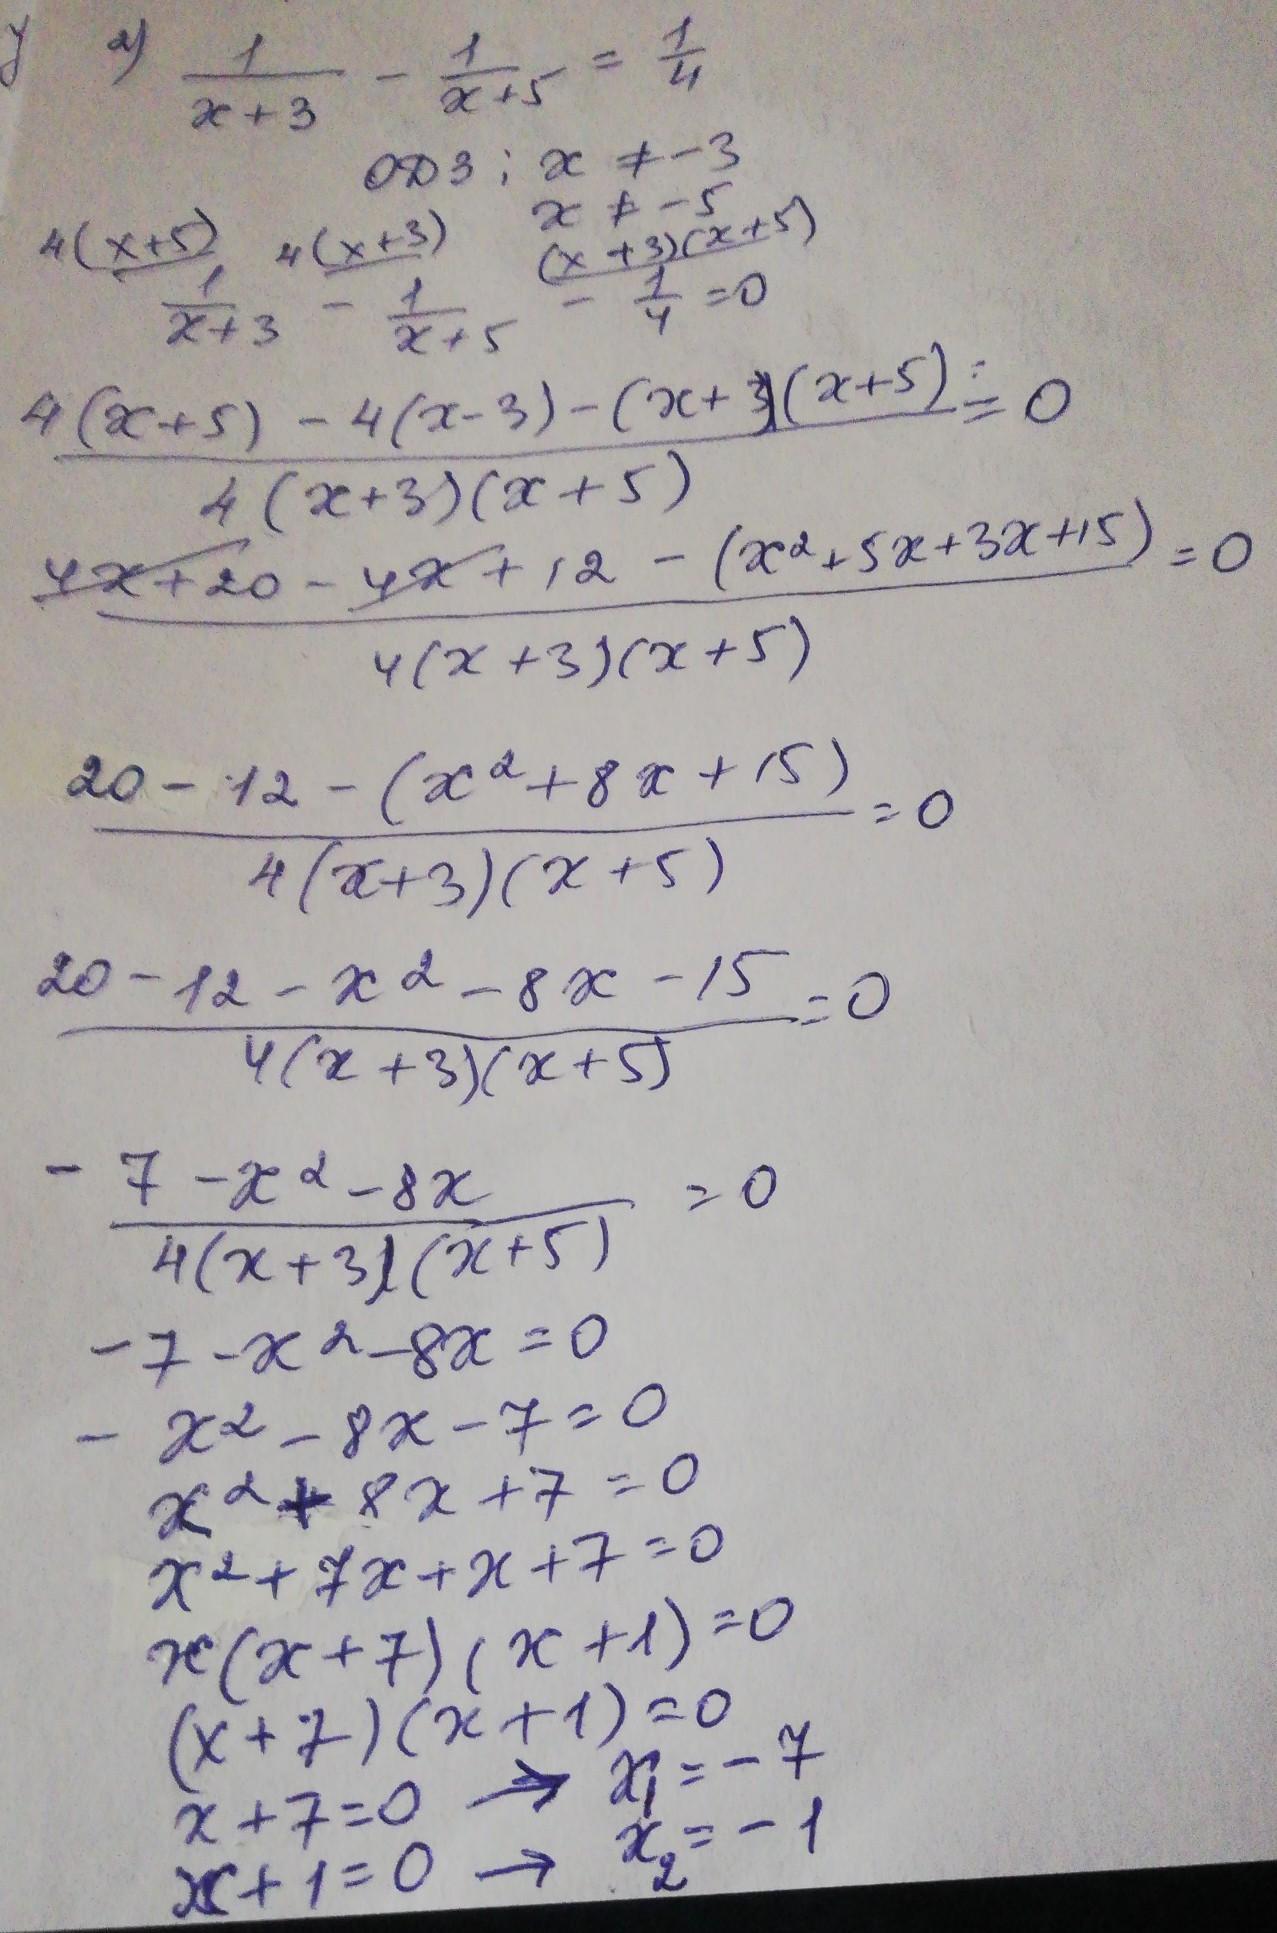 а) 1/(x+3) - 1/(x+5) = 1/4
ОДЗ: x ≠ -3
x ≠ -5
4(x+5) 4(x+3) (x+3)(x+5)
1/(x+3) - 1/(x+5) - 1/4 = 0
4(x+5) - 4(x-3) - (x+3)(x+5) = 0
4(x+3)(x+5)
4x+20 - 4x+12 - (x²+5x+3x+15) = 0
4(x+3)(x+5)
20 - 12 - (x²+8x+15) = 0
4(x+3)(x+5)
20 - 12 - x² - 8x - 15 = 0
4(x+3)(x+5)
- 7 - x² - 8x = 0
4(x+3)(x+5)
- 7 - x² - 8x = 0
- x² - 8x - 7 = 0
x² + 8x + 7 = 0
x² + 7x + x + 7 = 0
x(x+7)(x+1) = 0
(x+7)(x+1) = 0
x+7=0 → x₁ = -7
x+1=0 → x₂ = -1